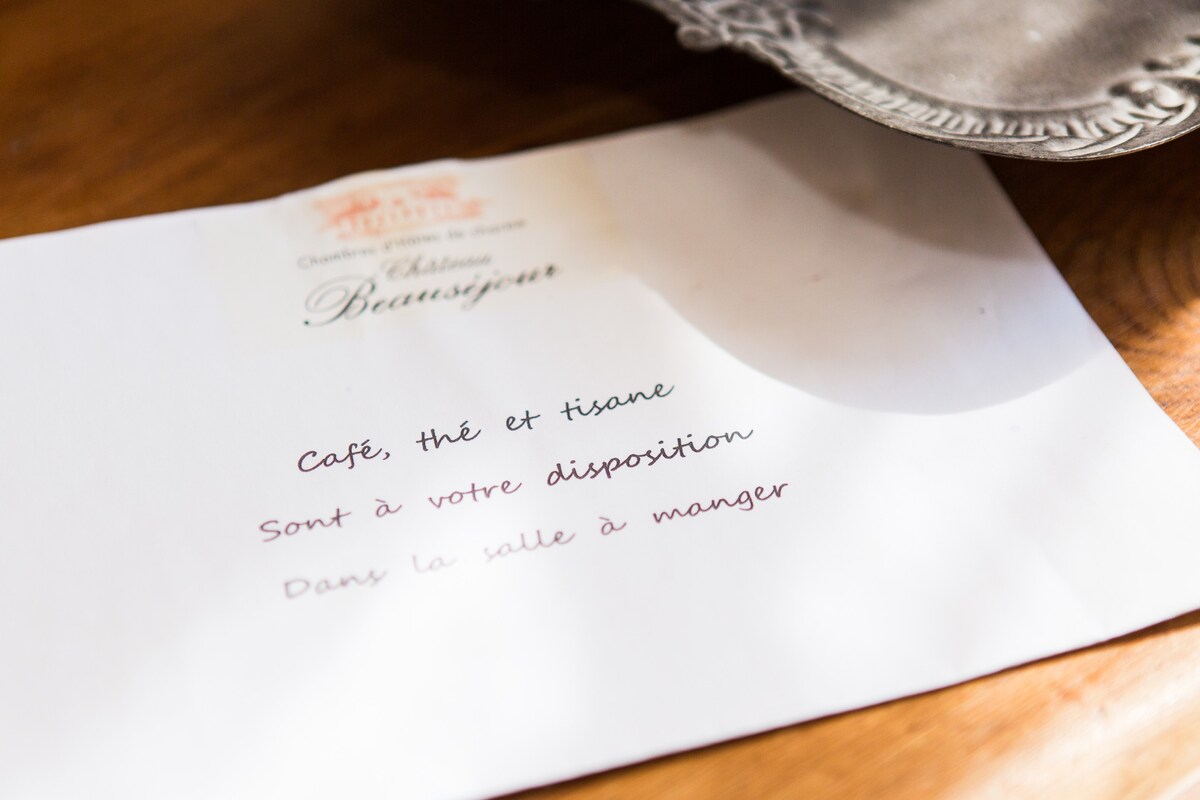 Chambres d'hôtes de charme
Château
Beauséjour
Café, thé et tisane
Sont à votre disposition
Dans la salle à manger